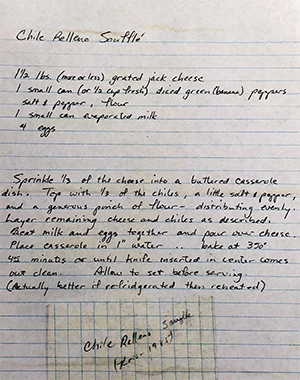 Chile Relleno Soufflé
1½ lbs. (more or less) grated jack cheese
1 small can (or ½ cup fresh) diced green (banana) peppers
salt & pepper, flour
1 small can evaporated milk
4 eggs
Sprinkle ⅓ of the cheese into a buttered casserole
dish. Top with ⅓ of the chiles, a little salt & pepper,
and a generous pinch of flour - distributing evenly
Layer remaining cheese and chiles as described.
Beat milk and eggs together and pour over cheese.
Place casserole in 1" water .. bake at 350°
45 minutes or until knife inserted in center comes
out clean. Allow to set before serving.
(Actually better if refridgerated then reheated)
Chile Relleno